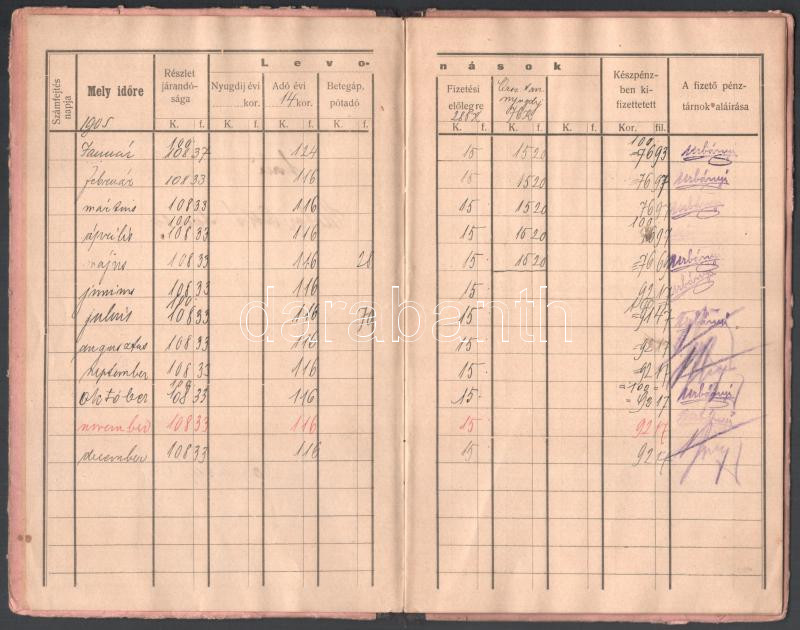 Levo-
nások
Számfejtés napja
Mely időre
Részlet járandó-sága
Nyugdij évi ........kor.
Adó évi 14 kor.
Betegáp. pótadó
Fizetési előlegre
Készpénz-ben ki-fizettetett
A fizető pénz-tárnok aláírása
1905
K. f. K. f. K. f. K. f.
K. f. K. f. K. f. Kor. fil.
100 100
Január 108 37 1 24 15 15 20 76 93 Urbányi
február 108 33 1 16 15 15 20 76 97 Urbányi
mártius 108 33 1 16 15 15 20 76 97
100 100
április 108 33 1 16 15 15 20 97
május 108 33 1 46 28 15 15 20 76 Urbányi
junius 108 33 1 16 15 92 17 Urbányi
100
julius 108 33 15 91 47
augusztus 108 33 1 16 15 92 17
september 108 33 1 16 15 92 17
100 =100=
október 108 33 1 16 15 92 17 Urbányi
november 108 33 1 16 15 92 17
december 108 33 1 16 15 92
darabanth